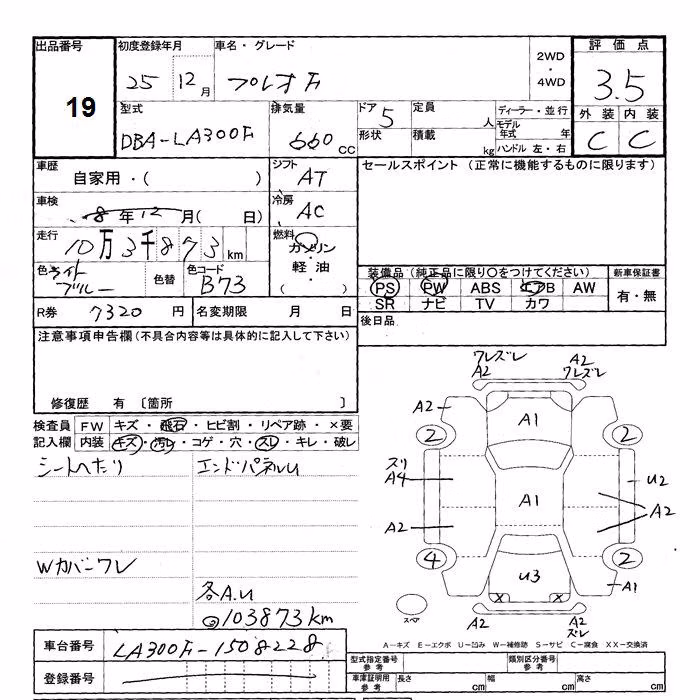 出品番号 初度登録年月 車名・グレード 2WD ・ 4WD 評価点
19 25 12月 プレオF 3.5
型式 排気量 ドア 5 定員 人 ディーラー・並行 外装 内装
DBA-LA300F 660cc 形状 積載 kg モデル年式 年 C C
ハンドル 左・右
車歴 シフト セールスポイント (正常に機能するものに限ります)
自家用・( ) AT
車検 冷房
8年12月( 日) AC
走行 燃料
10万3千873km ガソリン
軽油
( )
色 ライトブルー 色替 色コード B73
装備品 (純正品に限り〇をつけてください) 新車保証書
PS PW ABS エアB AW 有・無
SR ナビ TV カワ
R券 7320円 名変期限 月 日 後日品
注意事項申告欄(不具合内容等は具体的に記入して下さい)
修復歴 有 〔箇所 〕
検査員 FW キズ・飛石・ヒビ割・リペア跡・×要
記入欄 内装 キズ・汚レ・コゲ・穴・スレ・キレ・破レ
シートへたり エンドパネルU
Wカバーワレ
各A.U
103873km
ワレズレ A2
A2 ワレズレ
A2 A1
2 2
ズリ
A4 U2
A1 A2
A2
4 2
U3 A1
X X
スペア A2 A2
ズレ
A-キズ E-エクボ U-凹み W-補修跡 S-サビ C-腐食 XX-交換済
車台番号 LA300F-1508228
登録番号
型式指定番号 参考 類別区分番号 参考
車庫証明用 参考 長さ cm 幅 cm 高さ cm